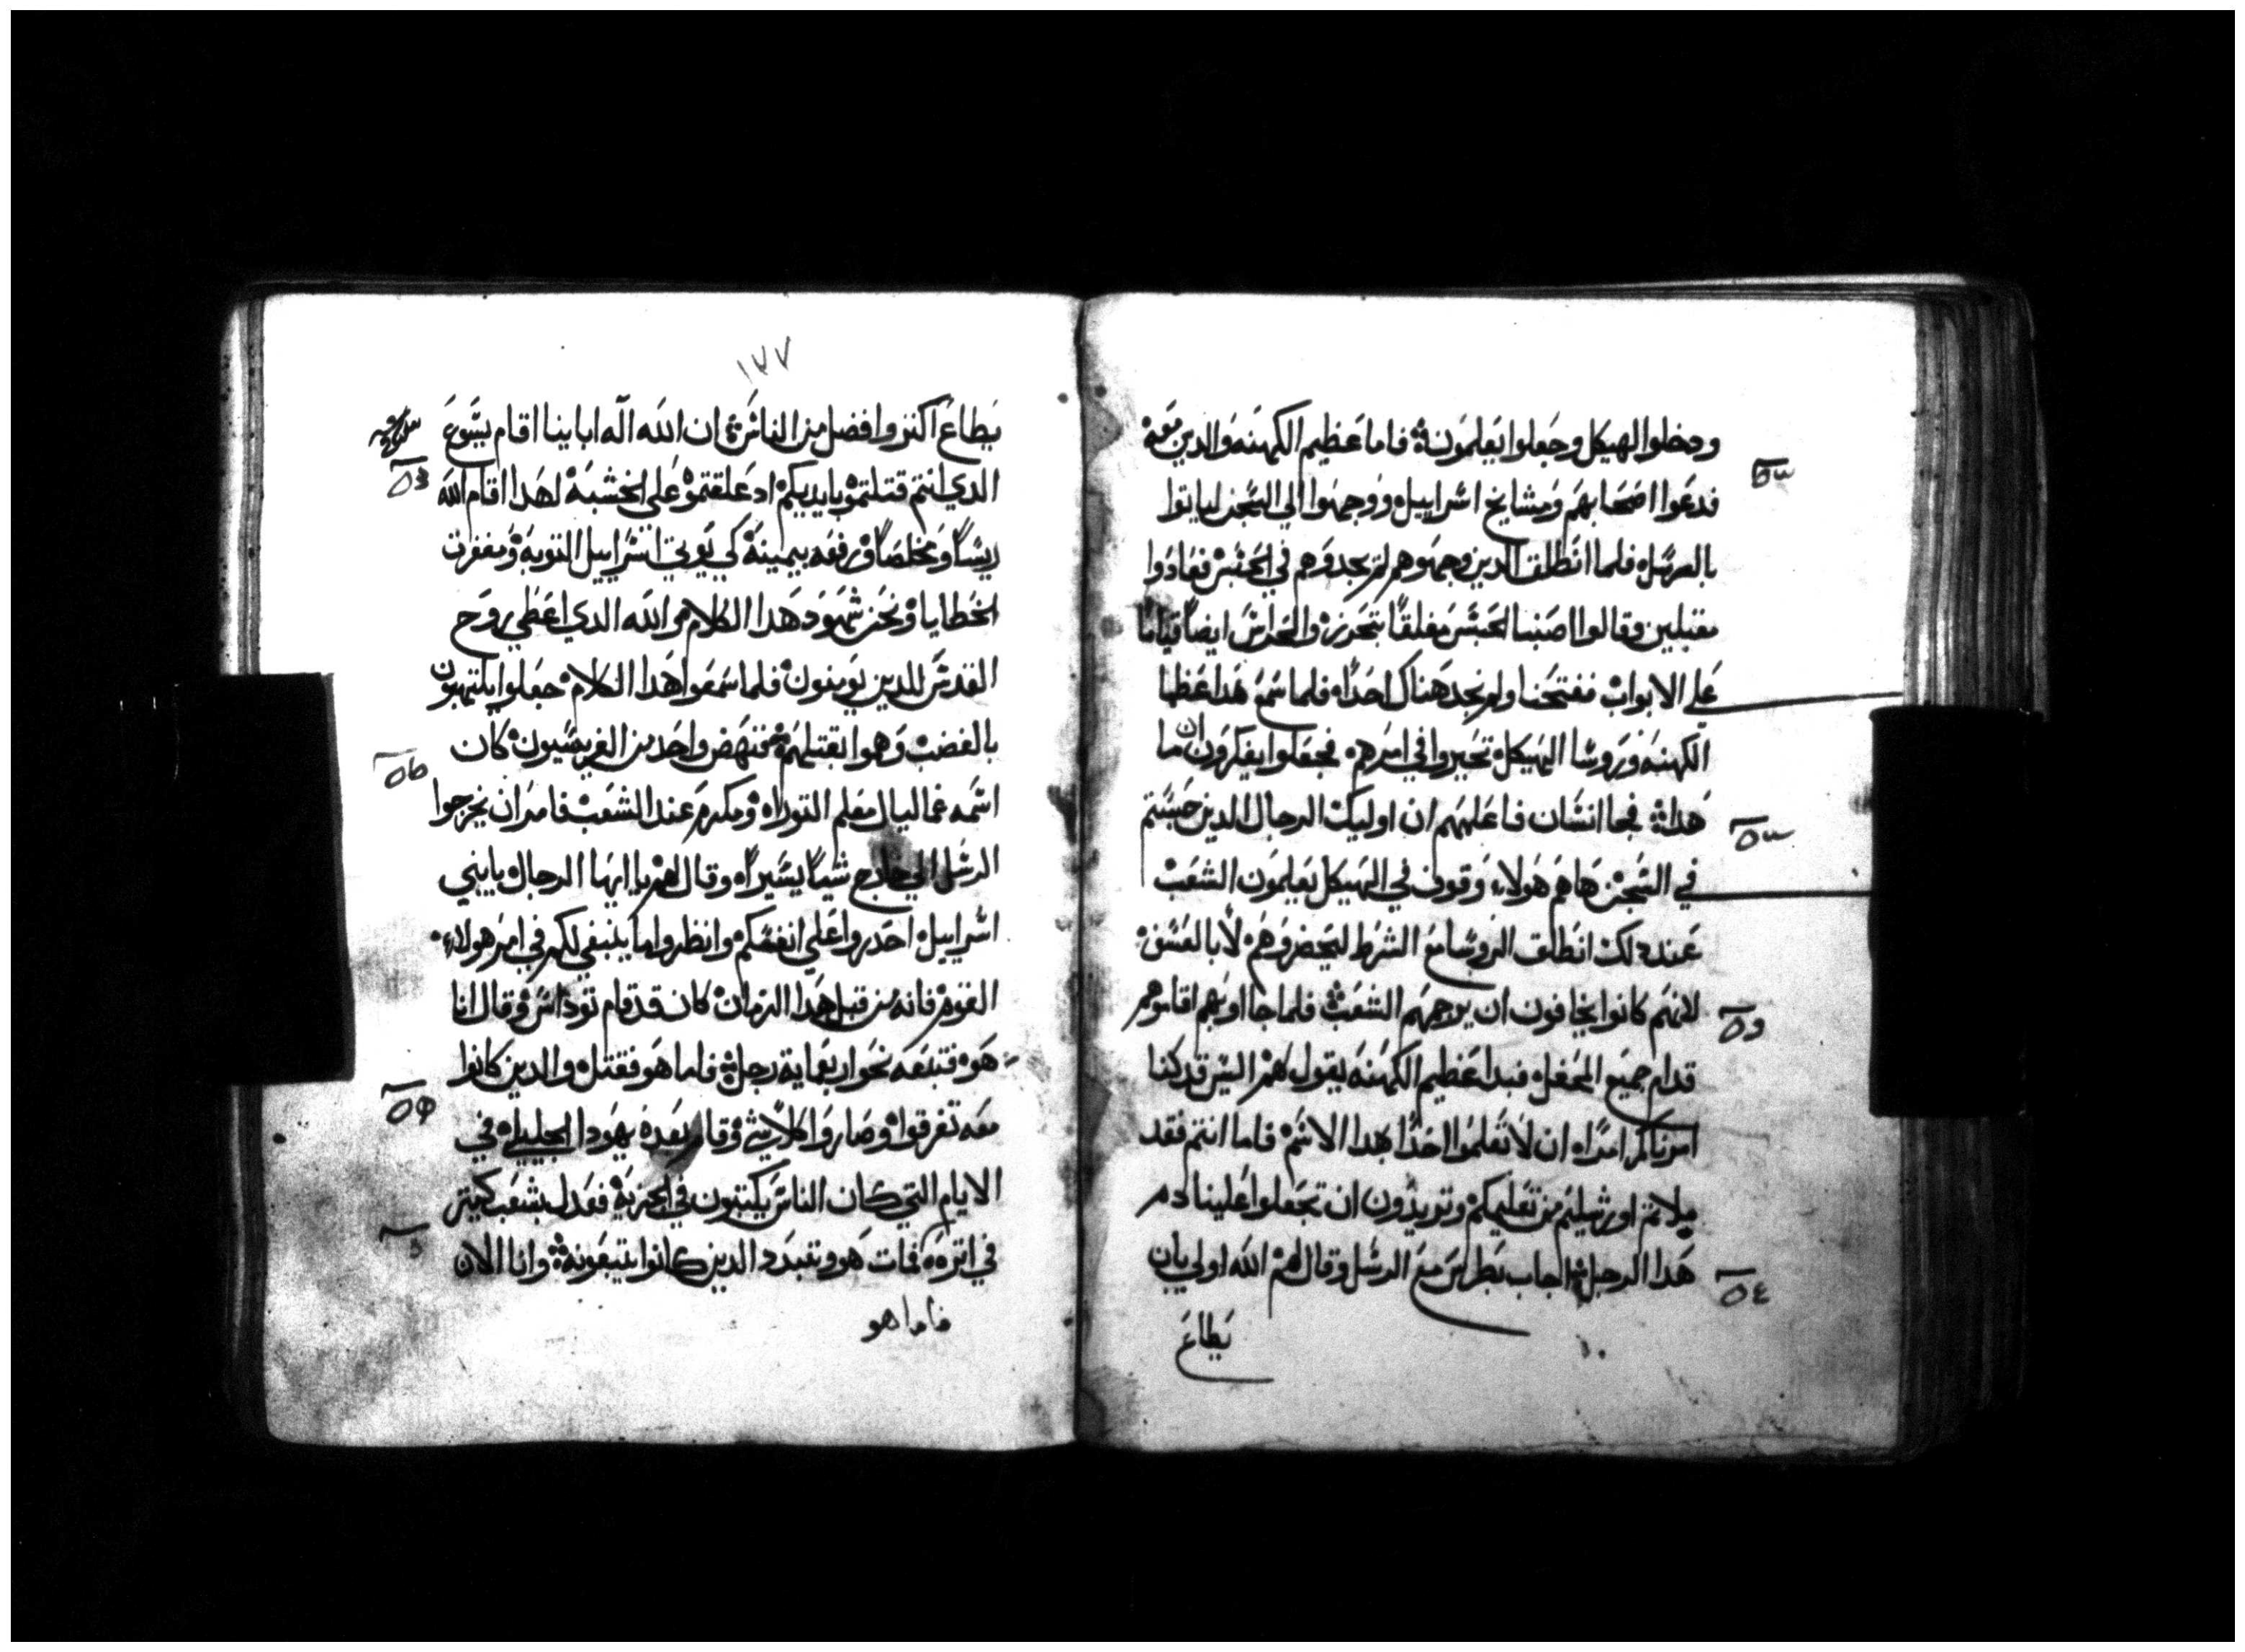 ودخلوا الهيكل وجعلوا يعلمون فاما عظيم الكهنه والدين معه
فدعوا اصحابهم ومشايخ اسراييل ووجهوا الي السجن لياتوا
بالرسل فلما انطلق الدين وجهوهم لم يجدوهم في الحبس فعادوا
مقبلين وقالوا اصبنا الحبس مغلقًا بتحرز والحراس ايضًا قيامًا
علي الابواب ففتحنا ولم نجد هناك احدًا فلما سمع هدا عظما
الكهنه وروسا الهيكل تحيروا في امرهم فجعلوا يفكرون ان ما
هدا فجا انسان فاعلمهم ان اوليك الرجال الدين حبستم
في السجن هاهم هولاء وقوف في الهيكل يعلمون الشعب
عند دلك انطلق الروسا مع الشرط ليحضروهم لا بالعسف
لانهم كانوا يخافون ان يرجمهم الشعب فلما جااوبهم اقاموهم
قدام جميع المحفل فبدا عظيم الكهنه يقول لهم اليس قد كنا
امرناكم امرًا ان لا تعلموا احدًا بهدا الاسم فاما انتم فقد
ملاتم اورشليم من تعليمكم وتريدون ان تجعلوا علينا دم
هدا الرجل اجاب بطرس مع الرسل وقال لهم الله اولي بان
يطاع
١٧٧
يطاع اكتر وافضل من الناس ان الله اله اباينا اقام يسوع
الدي انتم قتلتموه بايديكم اد علقتموه علي الخشبة لهدا اقام الله
ريسًا ومخلصًا ورفعه بيمينه كي يوتي اسراييل التوبه ومغفرت
الخطايا ونحن شهود هدا الكلام والله الدي اعطي روح
القدس للدين يومنون فلما سمعوا هدا الكلام جعلوا يلتهبون
بالغضب وهموا بقتلهم فنهض واحد من الفريسيون كان
اسمه غماليال معلم التوراه ومكرم عند الشعب فامر ان يخرجوا
الرسل الي خارج شيًا يسيرًا وقال لهم يا ايها الرجال يا بني
اسراييل احدروا علي انفسكم وانظروا ما ينبغي لكم في امر هولاء
القوم فانه من قبل هدا الزمان كان قد قام توداس وقال انا
هو فتبعه نحو اربعماية رجل فلما هو فقتل والدين كانوا
معه تفرقوا وصاروا كلاشي وقام بعده يهودا الجليلي في
الايام التي كان الناس يكتبون في الجزية فعدل بشعب كتير
في اتره فمات هو وتبدد الدين كانوا يتبعونه وانا الان
فاما هو